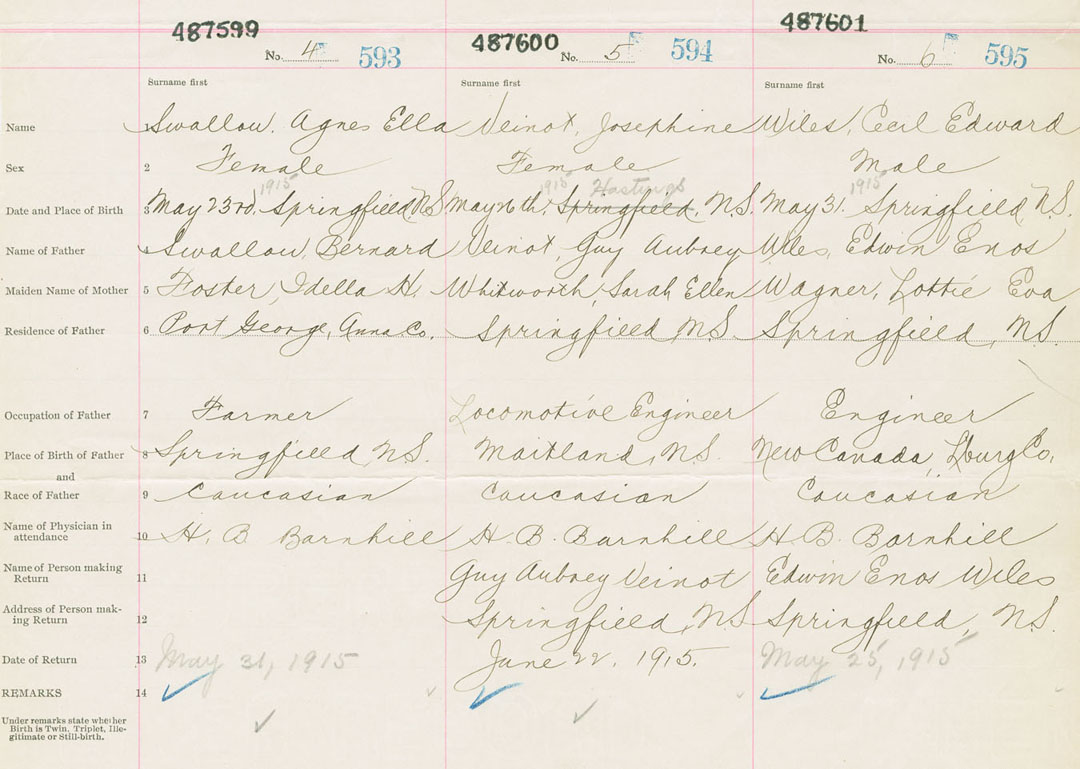 487599 487600 487601
No. 4 593 No. 5 594 No. 6 595
Surname first Surname first Surname first
Name 1 Swallow, Agnes Ella Veinot, Josephine Wiles, Cecil Edward
Sex 2 Female Female Male
1915 1915 Hastings 1915
Date and Place of Birth 3 May 23rd, Springfield, N.S. May 26th, Springfield, N.S. May 31. Springfield N.S.
Name of Father 4 Swallow, Bernard Veinot, Guy Aubrey Wiles, Edwin Enos
Maiden Name of Mother 5 Foster, Idella H. Whitworth, Sarah Ellen Wagner, Lottie Eva
Residence of Father 6 Port George, Anna Co. Springfield N.S. Springfield, N.S.
Occupation of Father 7 Farmer Locomotive Engineer Engineer
Place of Birth of Father 8 Springfield, N.S. Maitland, N.S. New Canada, L'burg Co.
and
Race of Father 9 Caucasian Caucasian Caucasian
Name of Physician in
attendance 10 H. B. Barnhill H. B. Barnhill H. B. Barnhill
Name of Person making
Return 11 Guy Aubrey Veinot Edwin Enos Wiles
Address of Person mak-
ing Return 12 Springfield, N.S. Springfield, N.S.
Date of Return 13 May 31, 1915 June 22, 1915. May 25, 1915
REMARKS 14
Under remarks state whether
Birth is Twin, Triplet, Ille-
gitimate or Still-birth.